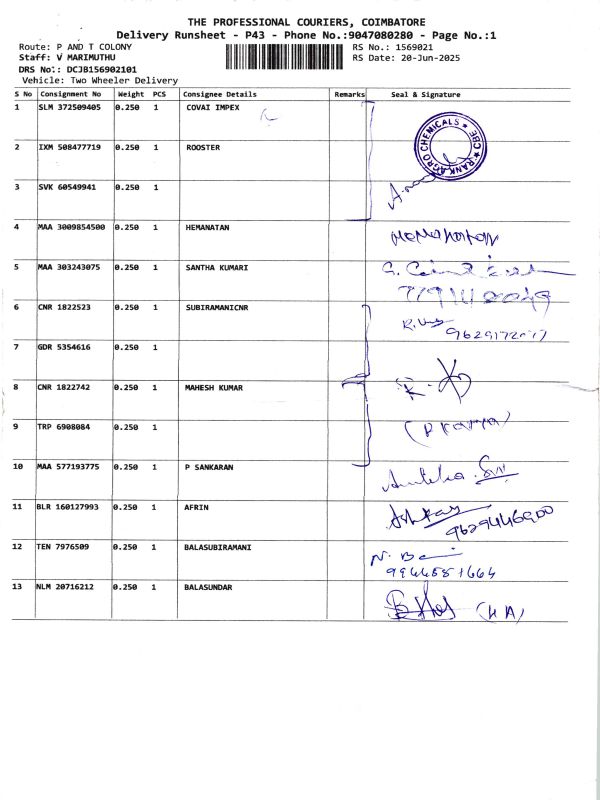 THE PROFESSIONAL COURIERS, COIMBATORE
Delivery Runsheet - P43 - Phone No.:9047080280 - Page No.:1
Route: P AND T COLONY RS No.: 1569021
Staff: V MARIMUTHU RS Date: 20-Jun-2025
DRS No.: DCJB156902101
Vehicle: Two Wheeler Delivery
S No Consignment No Weight PCS Consignee Details Remarks Seal & Signature
1 SLM 372509405 0.250 1 COVAI IMPEX
RANKAGRO CHEMICALS ★ CBE ★
2 IXM 508477719 0.250 1 ROOSTER
3 SVK 60549941 0.250 1
4 MAA 3009854500 0.250 1 HEMANATAN
5 MAA 303243075 0.250 1 SANTHA KUMARI
6 CNR 1822523 0.250 1 SUBIRAMANICNR
7 GDR 5354616 0.250 1
8 CNR 1822742 0.250 1 MAHESH KUMAR
9 TRP 6908084 0.250 1
10 MAA 577193775 0.250 1 P SANKARAN
11 BLR 160127993 0.250 1 AFRIN
9629446900
12 TEN 7976509 0.250 1 BALASUBIRAMANI
13 NLM 20716212 0.250 1 BALASUNDAR